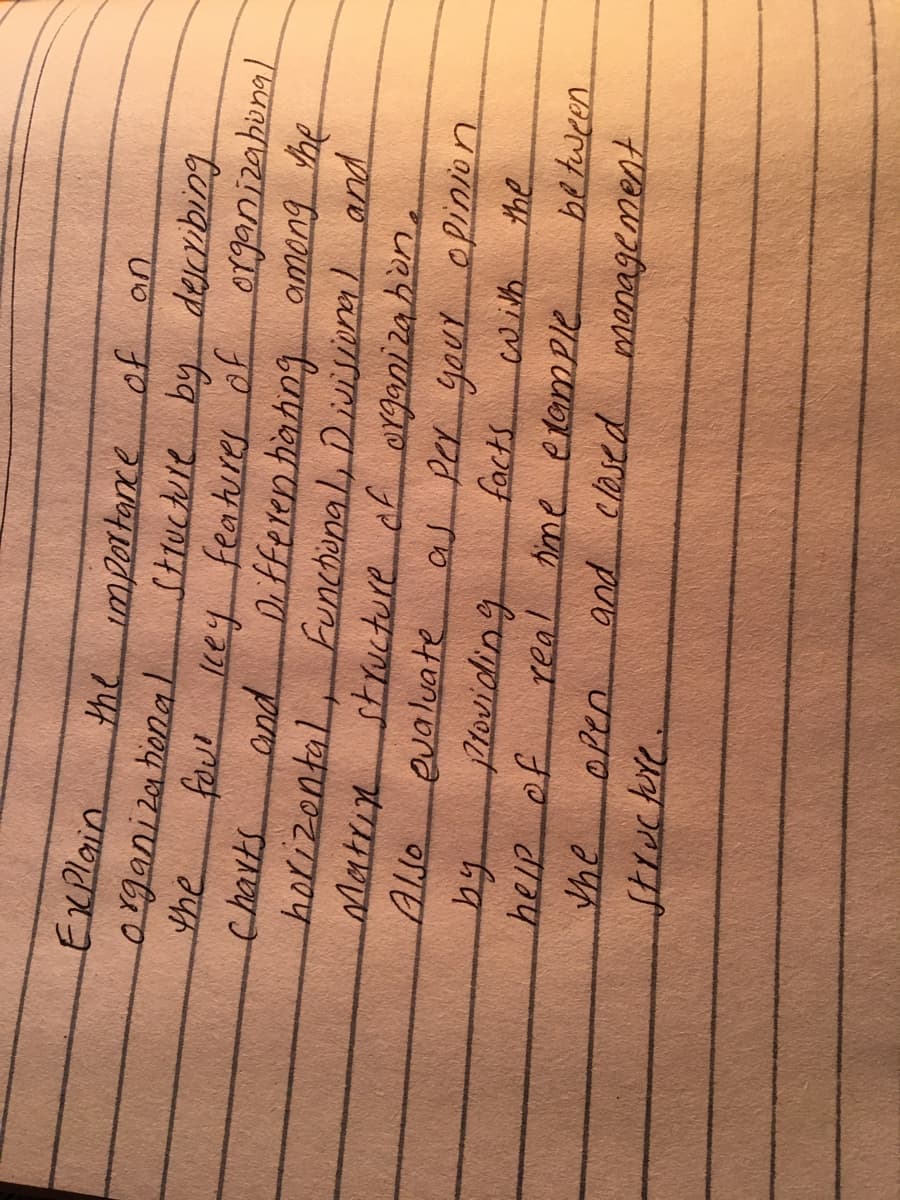 Explain the importance of an
organizational structure by describing
the four key features of organizational
charts and Differentiating among the
horizontal, Functional, Divisional and
Matrix structure of organization.
Also evaluate as per your opinion
by providing facts with the
help of real time example between
the open and closed management
structure.